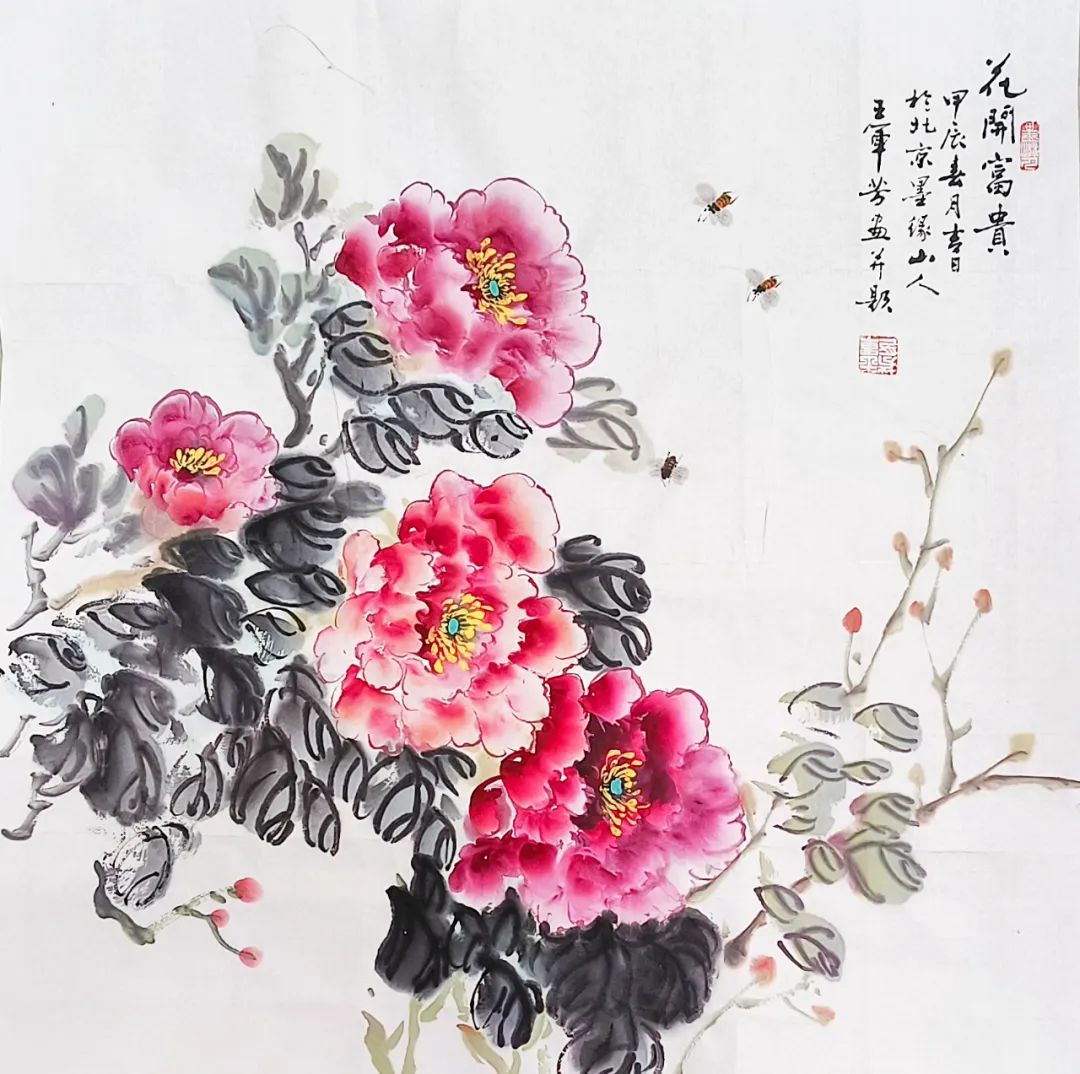 花開富貴
甲辰春月吉日
於北京墨緣山人
王軍芳画并題